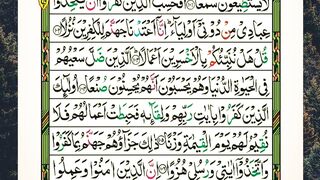 لَا يَسْتَطِيعُونَ سَمْعًا ۝ اَفَحَسِبَ الَّذِيْنَ كَفَرُوْٓا اَنْ يَّتَّخِذُوْا
عِبَادِيْ مِنْ دُوْنِيْٓ اَوْلِيَآءَ ؕ اِنَّآ اَعْتَدْنَا جَهَنَّمَ لِلْكٰفِرِيْنَ نُزُلًا ۝
قُلْ هَلْ نُنَبِّئُكُمْ بِالْاَخْسَرِيْنَ اَعْمَالًا ۝ اَلَّذِيْنَ ضَلَّ سَعْيُهُمْ
فِي الْحَيٰوةِ الدُّنْيَا وَهُمْ يَحْسَبُوْنَ اَنَّهُمْ يُحْسِنُوْنَ صُنْعًا ۝ اُولٰٓئِكَ
الَّذِيْنَ كَفَرُوْا بِاٰيٰتِ رَبِّهِمْ وَلِقَآئِهٖ فَحَبِطَتْ اَعْمَالُهُمْ فَلَا
نُقِيْمُ لَهُمْ يَوْمَ الْقِيٰمَةِ وَزْنًا ۝ ذٰلِكَ جَزَآؤُهُمْ جَهَنَّمُ بِمَا كَفَرُوْا
وَاتَّخَذُوْٓا اٰيٰتِيْ وَرُسُلِيْ هُزُوًا ۝ اِنَّ الَّذِيْنَ اٰمَنُوْا وَعَمِلُوا